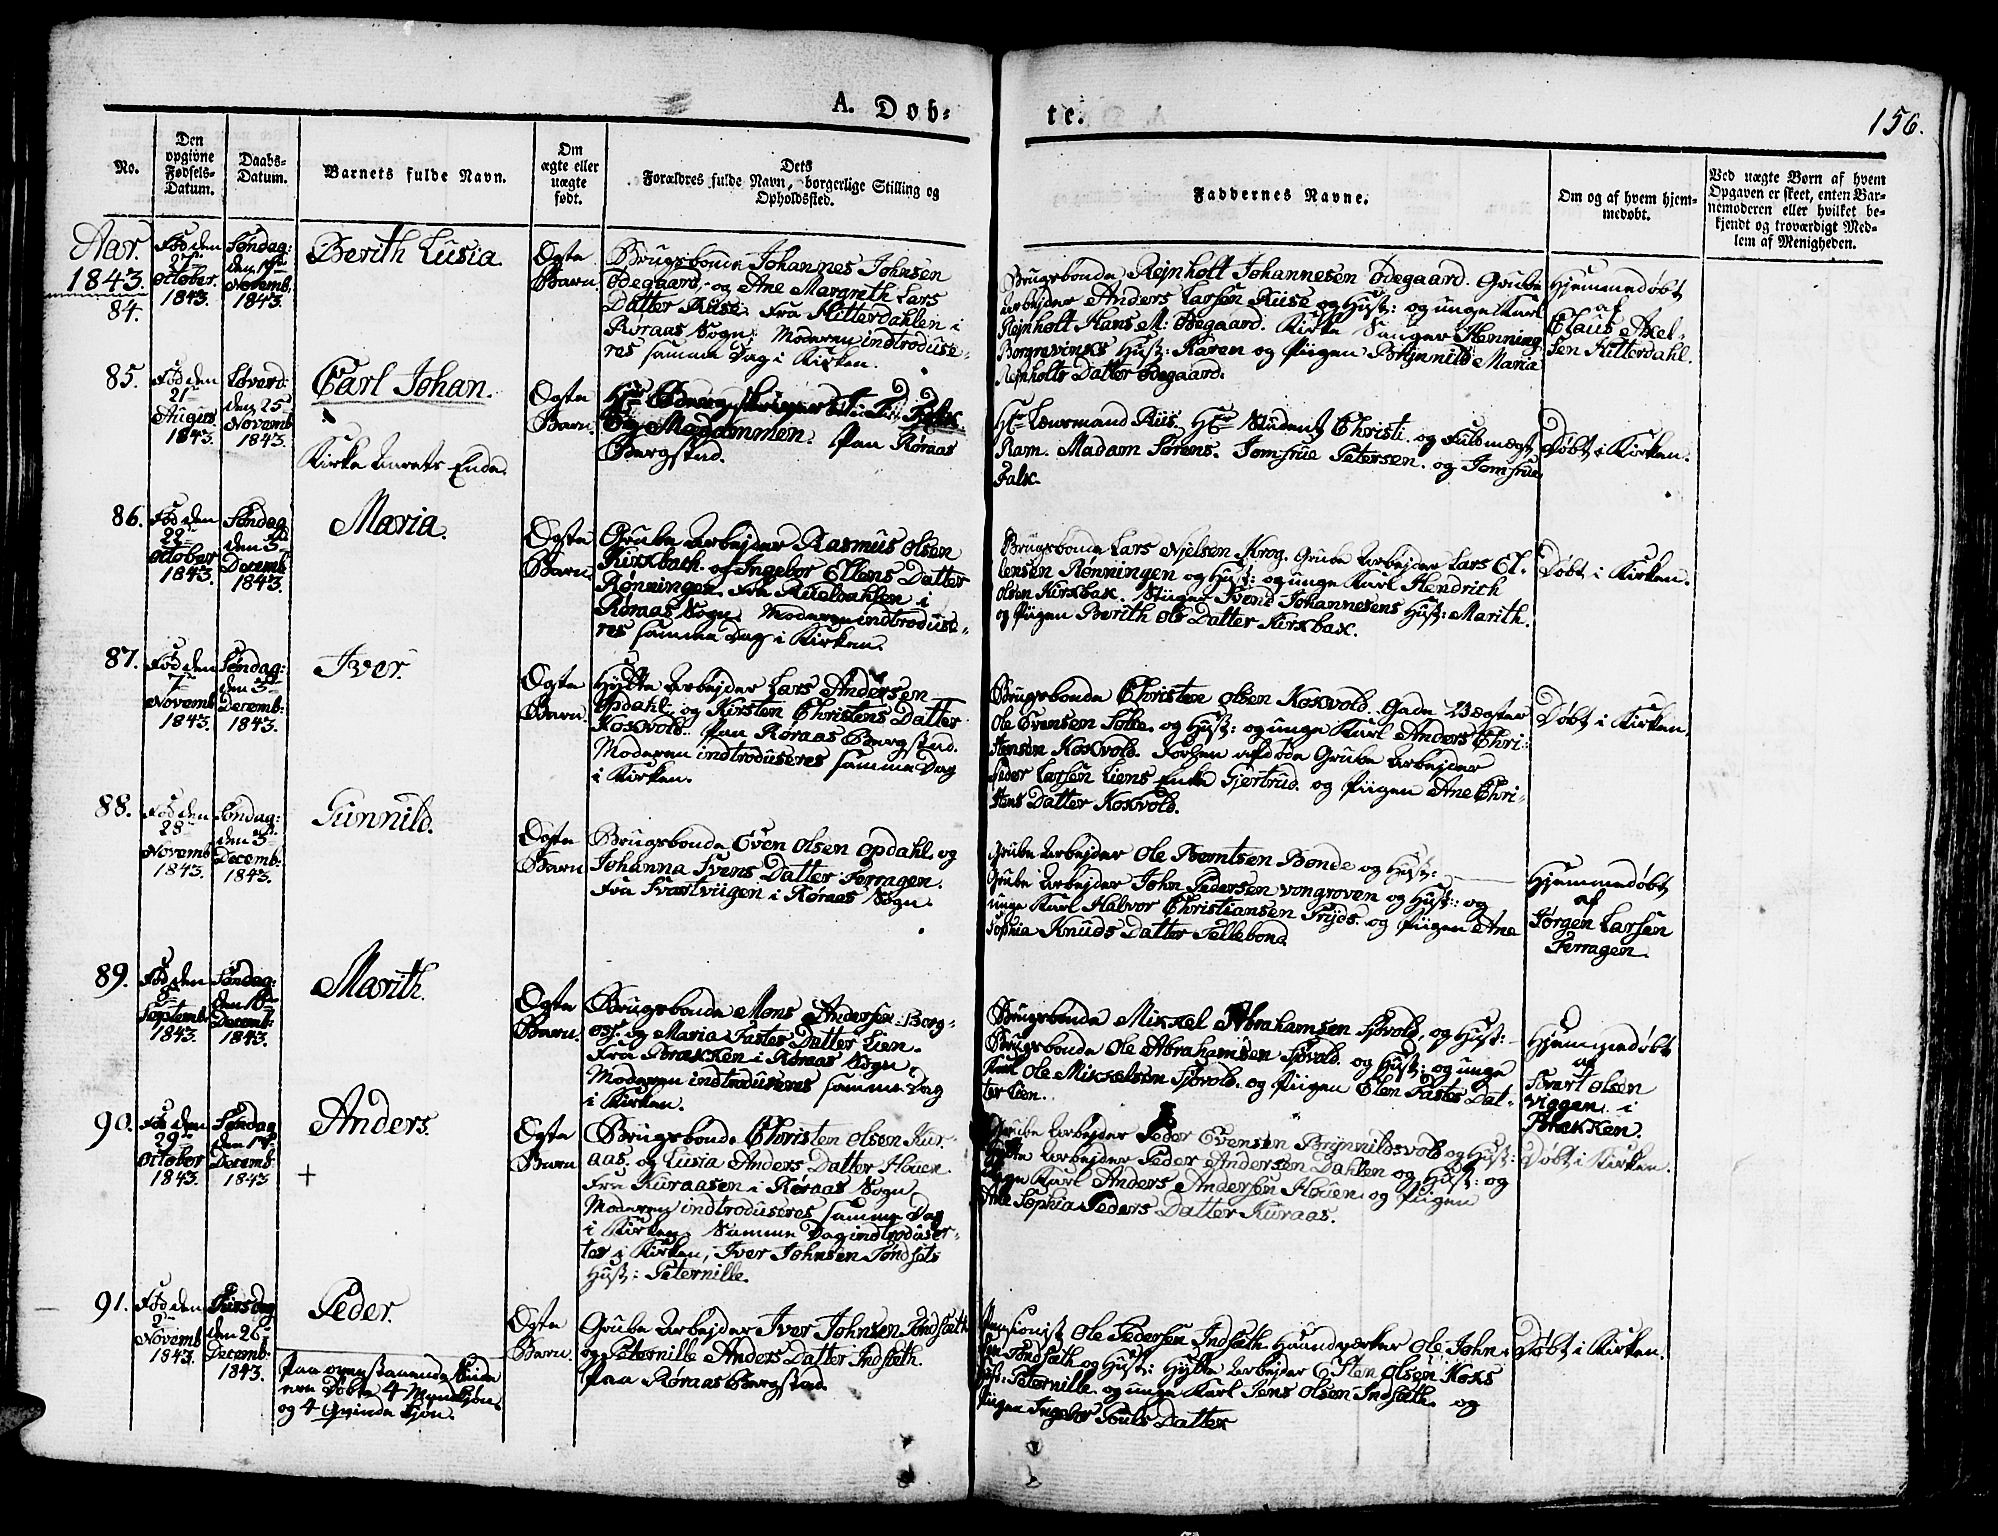 A. Døb-
te.
156.
No.
Den
opgivne
Fødsels-
Datum.
Daabs-
Datum.
Barnets fulde Navn.
Om
ægte eller
uægte
født.
Dets
Forældres fulde Navn, borgerlige Stilling og
Opholdssted.
Faddernes Navne.
Om og af hvem hjem-
medøbt.
Ved uægte Børn af hvem
Opgaven er skeet, enten Bar-
nemoderen eller hvilket be-
kjendt og troværdigt Med-
lem af Menigheden.
Aar.
1843.
84.
Fød den
October
1843.
Søndag:
den 19de
Novemb.
1843.
Berith Lusia.
Ægte
Barn.
Brugsbonde Johannes Johnsen
Ødegaard, og Ane Margreth Lars
Datter Ruse. Fra Hitterdahlen i
Røraas Sogn, Moderen indtroduse-
res samme Dag i Kirken.
Brugsbonde Rejnholt Johannesen Ødegaard. Grube
Arbejder Anders Larsen Riise og Hust: og unge Karl
Rejnholt Hans M: Ødegaard. Kirke Sanger Henning
Borgrevinks Hust: Karen og Piigen Brynnild Maria
Rejnholts Datter Ødegaard.
Hjemmedøbt
af
Claus Axel-
sen Hitterdahl.
85.
Fød den
21
August
1843.
Løverd
den 25
Novemb
1843.
Carl Johan.
Kirke Aarets Ende.
Ægte
Barn.
Hr
og Madammen. Paa Røraas
Bergstad.
Hr Lænsmand Riis. Hr Student Christi. og Fuldmægt
Ram. Madam Sørens. Jomfrue Petersen. og Jomfrue
Falk.
Døbt i Kirken.
86.
Fød den
22
October
1843.
Søndag
den 3de
Decemb
1843.
Maria.
Ægte
Barn.
Grube Arbejder Rasmus Olsen
Kirkbach. og Ingebor Ellens Datter
Rønningen. Fra Rueldahlen i
Røraas Sogn. Moderen indtroduse-
res samme Dag i Kirken.
Brugsbonde Lars Njelsen Krog. Grube Arbejder Lars El-
lensen Rønningen og Hust: og unge Karl Hendrich
Olsen Kirkbak. Stiiger Svend Johannesens Hust: Marith.
og Piigen Berith Ols Datter Kirkbak.
Døbt i Kirken.
87.
Fød den
7
Novemb
1843.
Søndag:
den 3de
Decemb:
1843.
Iver.
Ægte
Barn.
Hytte Arbejder Lars Andersen
Opdahl. og Kirsten Christens Datter
Kokvold. Paa Røraas Bergstad.
Moderen indtroduseres samme Dag
i Kirken.
Brugsbonde Christen Olsen Kokvold. Gade Vægter
Ole Evensen Solle. og Hust: og unge Karl Anders Chri-
stensen Kokvold. Forhen afdøde Grube Arbejder
Peder Larsen Liens Enke Gjertrud. og Piigen Ane Chri-
stens Datter Kokvold.
Døbt i Kirken.
88.
Fød den
28
Novemb
1843.
Søndag:
den 3de
Decemb:
1843.
Gunnild.
Ægte
Barn
Brugsbonde Even Olsen Opdahl. og
Johanna Svens Datter Ferragen.
Fra Svartviigen i Røraas Sogn.
Grube Arbejder Ole Berntsen Bonde og Hust:
Grube Arbejder John Pedersen Vongroven og Hust: og
unge Karl Halvor Christiansen Tryds. og Piigen Ane
Sophia Knuds Datter Tellebond
Hjemmedøbt
af
Jørgen Larsen
Ferragen.
89.
Fød den
Septemb
1843.
Søndag:
Decemb:
1843.
Marith.
Ægte
Barn.
Brugsbonde Mons Andersen Borg-
os. og Maria Fastes Datter Lien.
Fra Brækken i Røraas Sogn,
Moderen indtroduseres samme Dag
i Kirken.
Brugsbonde Mikkel Abrahamsen Sjovold. og Hust:
Brugsbonde Ole Abrahamsen Sjovold. og Hust: og unge
Karl Ole Mikkelsen Sjovold. og Piigen Elen Fastes Dat-
ter Lien.
Hjemmedøbt
af
Svert Olsen
Viggen. i
Brækken.
90.
Fød den
29
October
1843.
Søndag
Decemb:
1843
Anders.
+
Ægte
Barn
Brugsbonde Christen Olsen Kur-
aas. og Lusia Anders Datter Houen
Fra Kuraasen i Røraas Sogn,
Moderen indtroduseres samme Dag
i Kirken. Samme Dag indtroduser-
tes i Kirken, Iver Johnsen Tøndsets
Hust: Peternille.
Grube Arbejder Peder Evensen Brynnildsvold og Hust:
Hytte Arbejder Peder Andersen Dahlen og Hust: og
unge Karl Anders Andersen Houen. og Piigen
Ane Sophia Peders Datter Kuraas.
Døbt i Kirken.
91.
Fød den
2
Novemb
1843.
Tiirsdag
den 26
Decemb:
1843.
Peder.
Paa ovenstaaende Siide
ere Døbte 4 Mandkjøn.
og 4 Qvindekjøn.
Ægte
Barn.
Grube Arbejder Iver Johnsen Tøndsæth
og Peternille Anders Datter Indsæth.
Paa Røraas Bergstad.
Pensionist Ole Pedersen Indsæth. Haandværker Ole John-
sen Tøndsæth og Hust: Hytte Arbejder Esten Olsen Koks
Hust: Peternille. og unge Karl Jens Olsen Indsæth. og
Piigen Ingebor Pouls Datter
Døbt i Kirken.